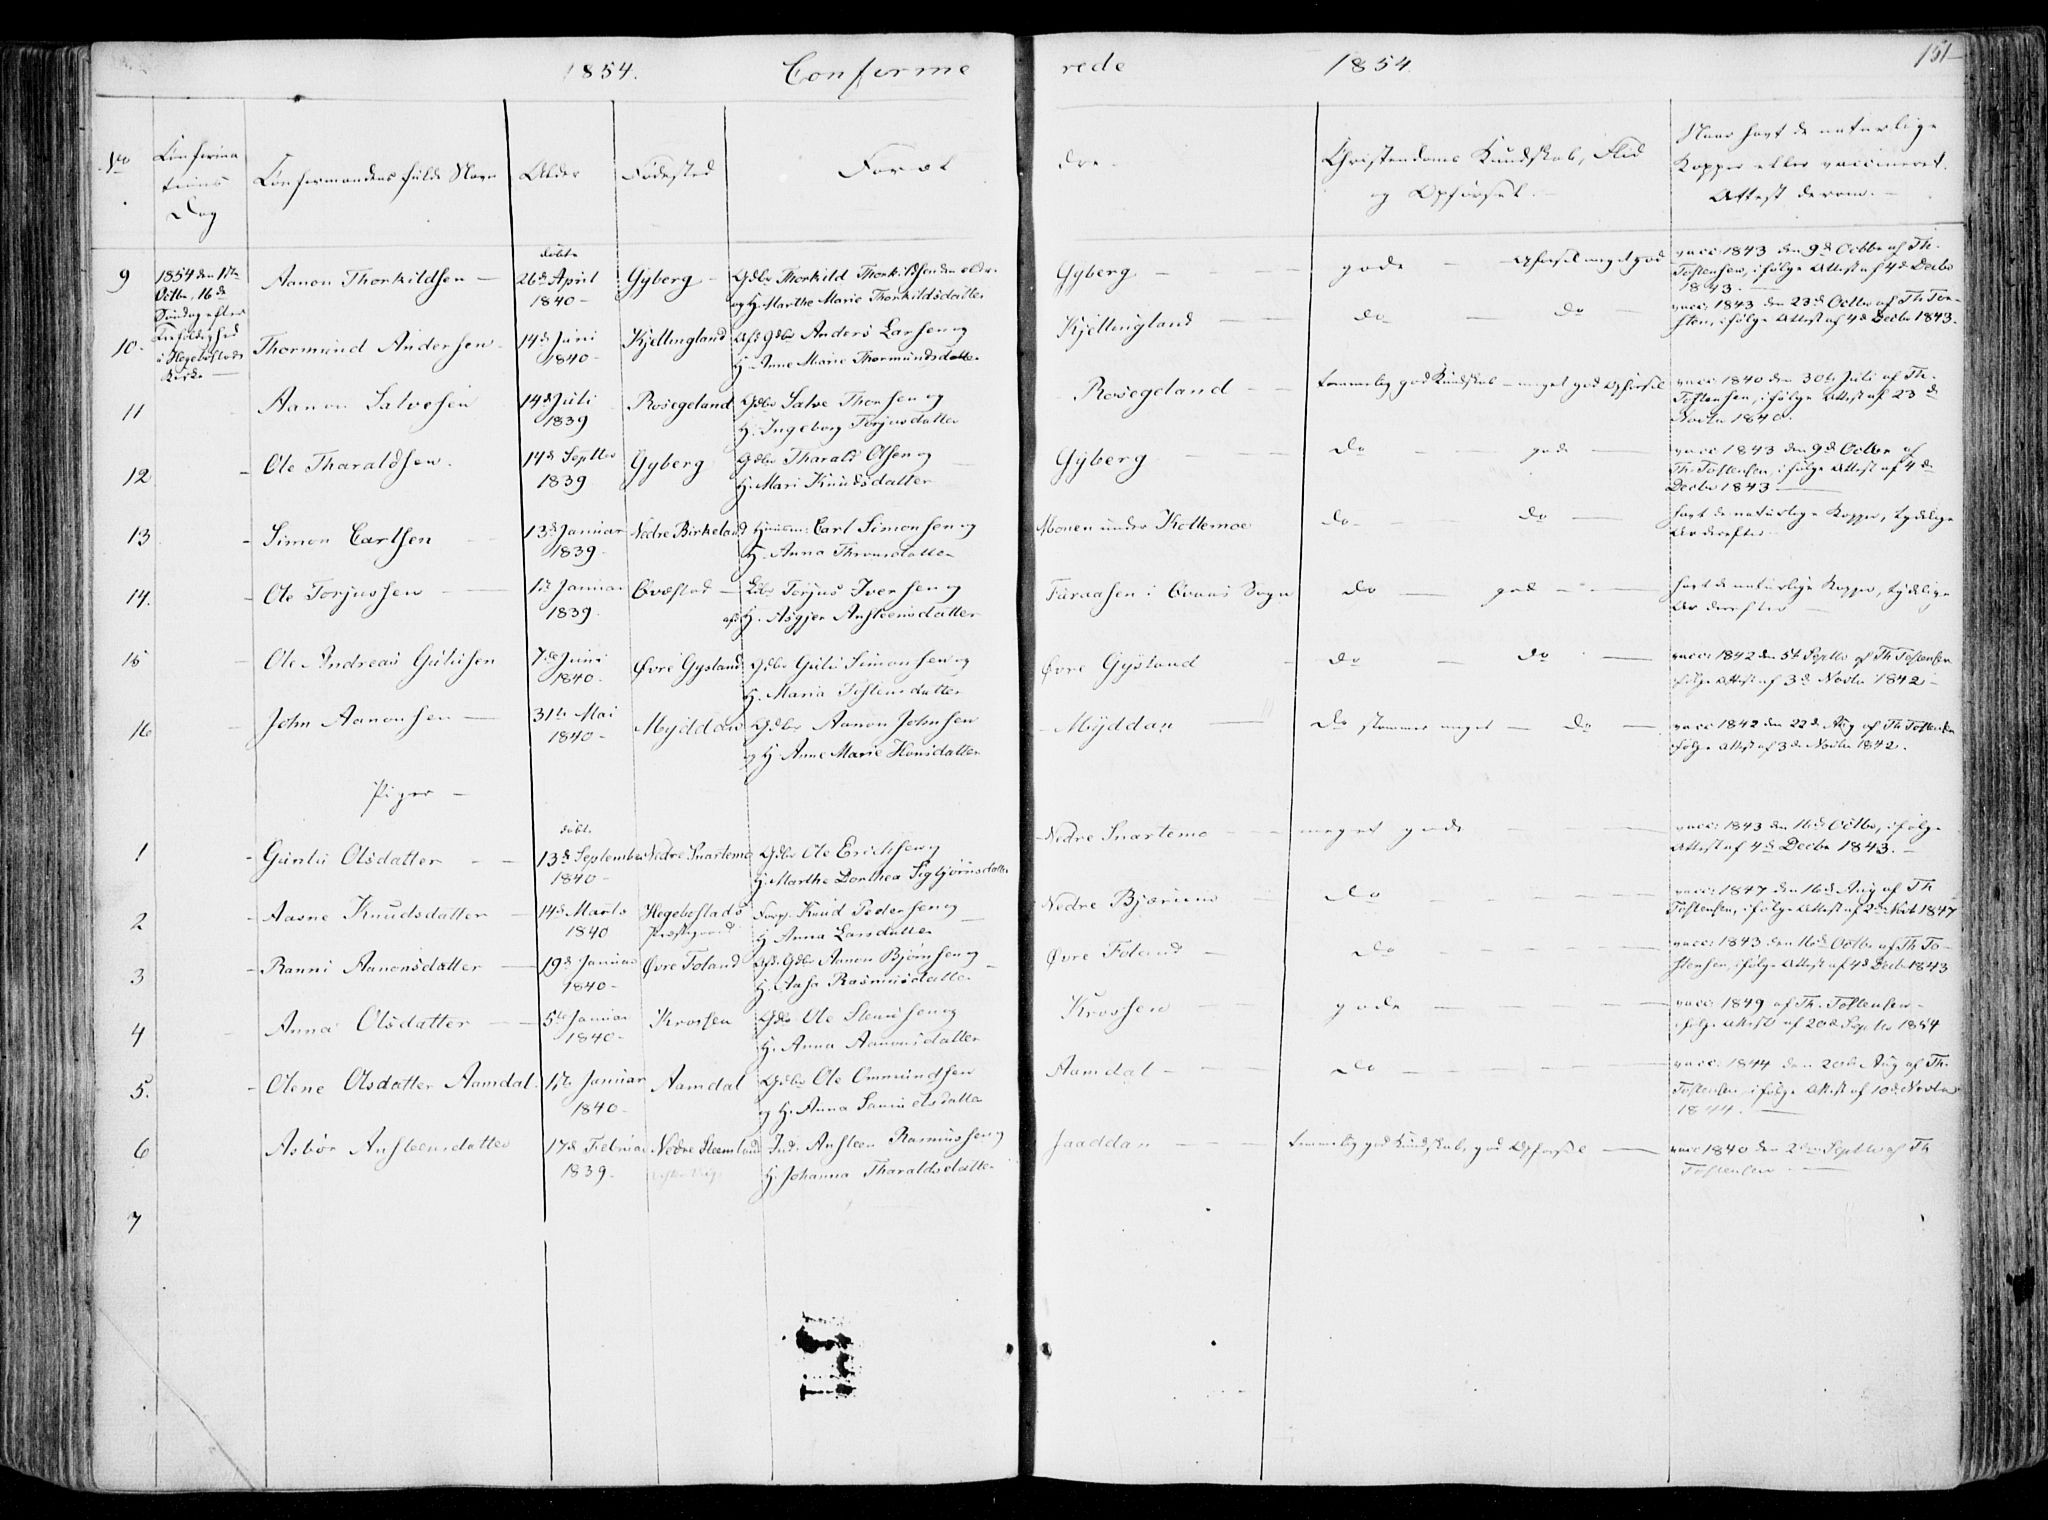 1854. Confirme rede 1854. 151
No Confirmations Dag Confirmandens fulde Navn Alder Fødested Foræl dre. Christendoms Kundskab, Flid og Opførsel. Naar havt de naturlige Kopper eller vaccineret. Attest derom.
9 1854 den 1te Octbr, 16de Søndag efter Trefoldighed i Hegebostads Kirke
Aanon Thorkildsen døbt 26de April 1840 Gyberg Gdbr Thorkild Thorkildsen den eldre og H. Marthe Marie Thorkildsdatter Gyberg gode Opførsel meget god vacc: 1843 den 9de Octbr af Th. Tostensen, ifølge Attest af 4de Decbr 1843.
10. Thormund Andersen 14de Juni 1840 Kjellingland Afd. Gdbr Anders Larsen og H. Anne Marie Thormundsdatter Kjellingland do do vacc: 1843 den 23de Octbr af Th. Tosten, ifølge Attest af 4de Decbr 1843.
11 Aanon Salvesen 14de Juli 1839 Rosegeland Gdbr Salve Thorsen og H. Ingeborg Torjusdatter Rosegeland temmelig god Kundskab meget god Opførsel vacc: 1840 den 30te Juli af Th. Tostensen, ifølge Attest af 23de Novbr 1840.
12 Ole Tharaldsen. 14de Septbr 1839 Gyberg Gdbr Tharald Olsen og H. Mari Knudsdatter Gyberg do gode vacc: 1843 den 9de Octbr af Th. Tostensen, ifølge Attest af 4de Decbr 1843
13 Simon Carlsen 13de Januar 1839. Nedre Birkeland Huusm: Carl Simonsen og H. Anna Thronsdatter Monen under Kollemoe do do havt de naturlige Kopper, tydelige Ar derefter
14. Ole Torjussen 1te Januar 1839. Qvæstad Ldbr Torjus Iversen og afd. H. Asgjer Ansteensdatter Furaasen i Qvaas Sogn do god havt de naturlige Kopper, tydelige Ar derefter
15 Ole Andreas Gulusen 7de Juni 1840. Øvre Gysland Gdbr Gulu Simonsen og H. Maria Tostensdatter Øvre Gysland do do vacc: 1842 den 5te Septbr af Th Tostensen ifølge Attest af 3de Novbr 1842
16 John Aanonsen 31te Mai 1840 Myddan Gdbr Aanon Johnsen og H. Anne Marie Hansdatter Myddan do stammer meget do vacc: 1842 den 22de Aug af Th Tostensen ifølge Attest af 3de Novbr 1842.
Piger
1 Guntu Olsdatter døbt 13de September 1840 Nedre Snartemo Gdbr Ole Erichsen og H. Marthe Dorthea Sigbjørnsdatter Nedre Snartemo meget gode vacc: 1843 den 16de Octbr, ifølge Attest af 4de Decbr 1843.
2 Aasne Knudsdatter 14de Marts 1840 Hegebostads Præstgaard Forp. Knud Pedersen og H. Anna Larsdatter Nedre Bjærum do vacc: 1847 den 16de Aug af Th Tostensen, ifølge Attest af 2de Novb 1847
3 Ranni Aanonsdatter 19de Januar 1840 Øvre Foland Afd. Gdbr Aanon Bjørnsen og H. Aasa Rasmusdatter Øvre Foland do vacc: 1843 den 16de Octbr af Th Tostensen, ifølge Attest af 4de Decbr 1843
4 Anna Olsdatter 5te Januar 1840 Krossen Gdbr Ole Steensen og H. Anna Aanonsdatter Krossen gode vacc: 1849 af Th. Tostensen ifølge Attest af 20de Septbr 1854
5. Olene Olsdatter Aamdal 17te Januar 1840 Aamdal Gdbr Ole Ommundsen og H. Anna Samuelsdatter Aamdal do vacc: 1844 den 20de Aug af Th. Tostensen, ifølge Attest af 10de Novbr 1844.
6 Asbør Anstensdatter 17de Februar 1839. Nedre Steensland Ind. Ansteen Rasmussen og H. Johanna Tharaldsdatter Jaaddan temmelig god Kundskab, god Opførsel vacc: 1840 den 2den Septbr af Th Tostensen
7